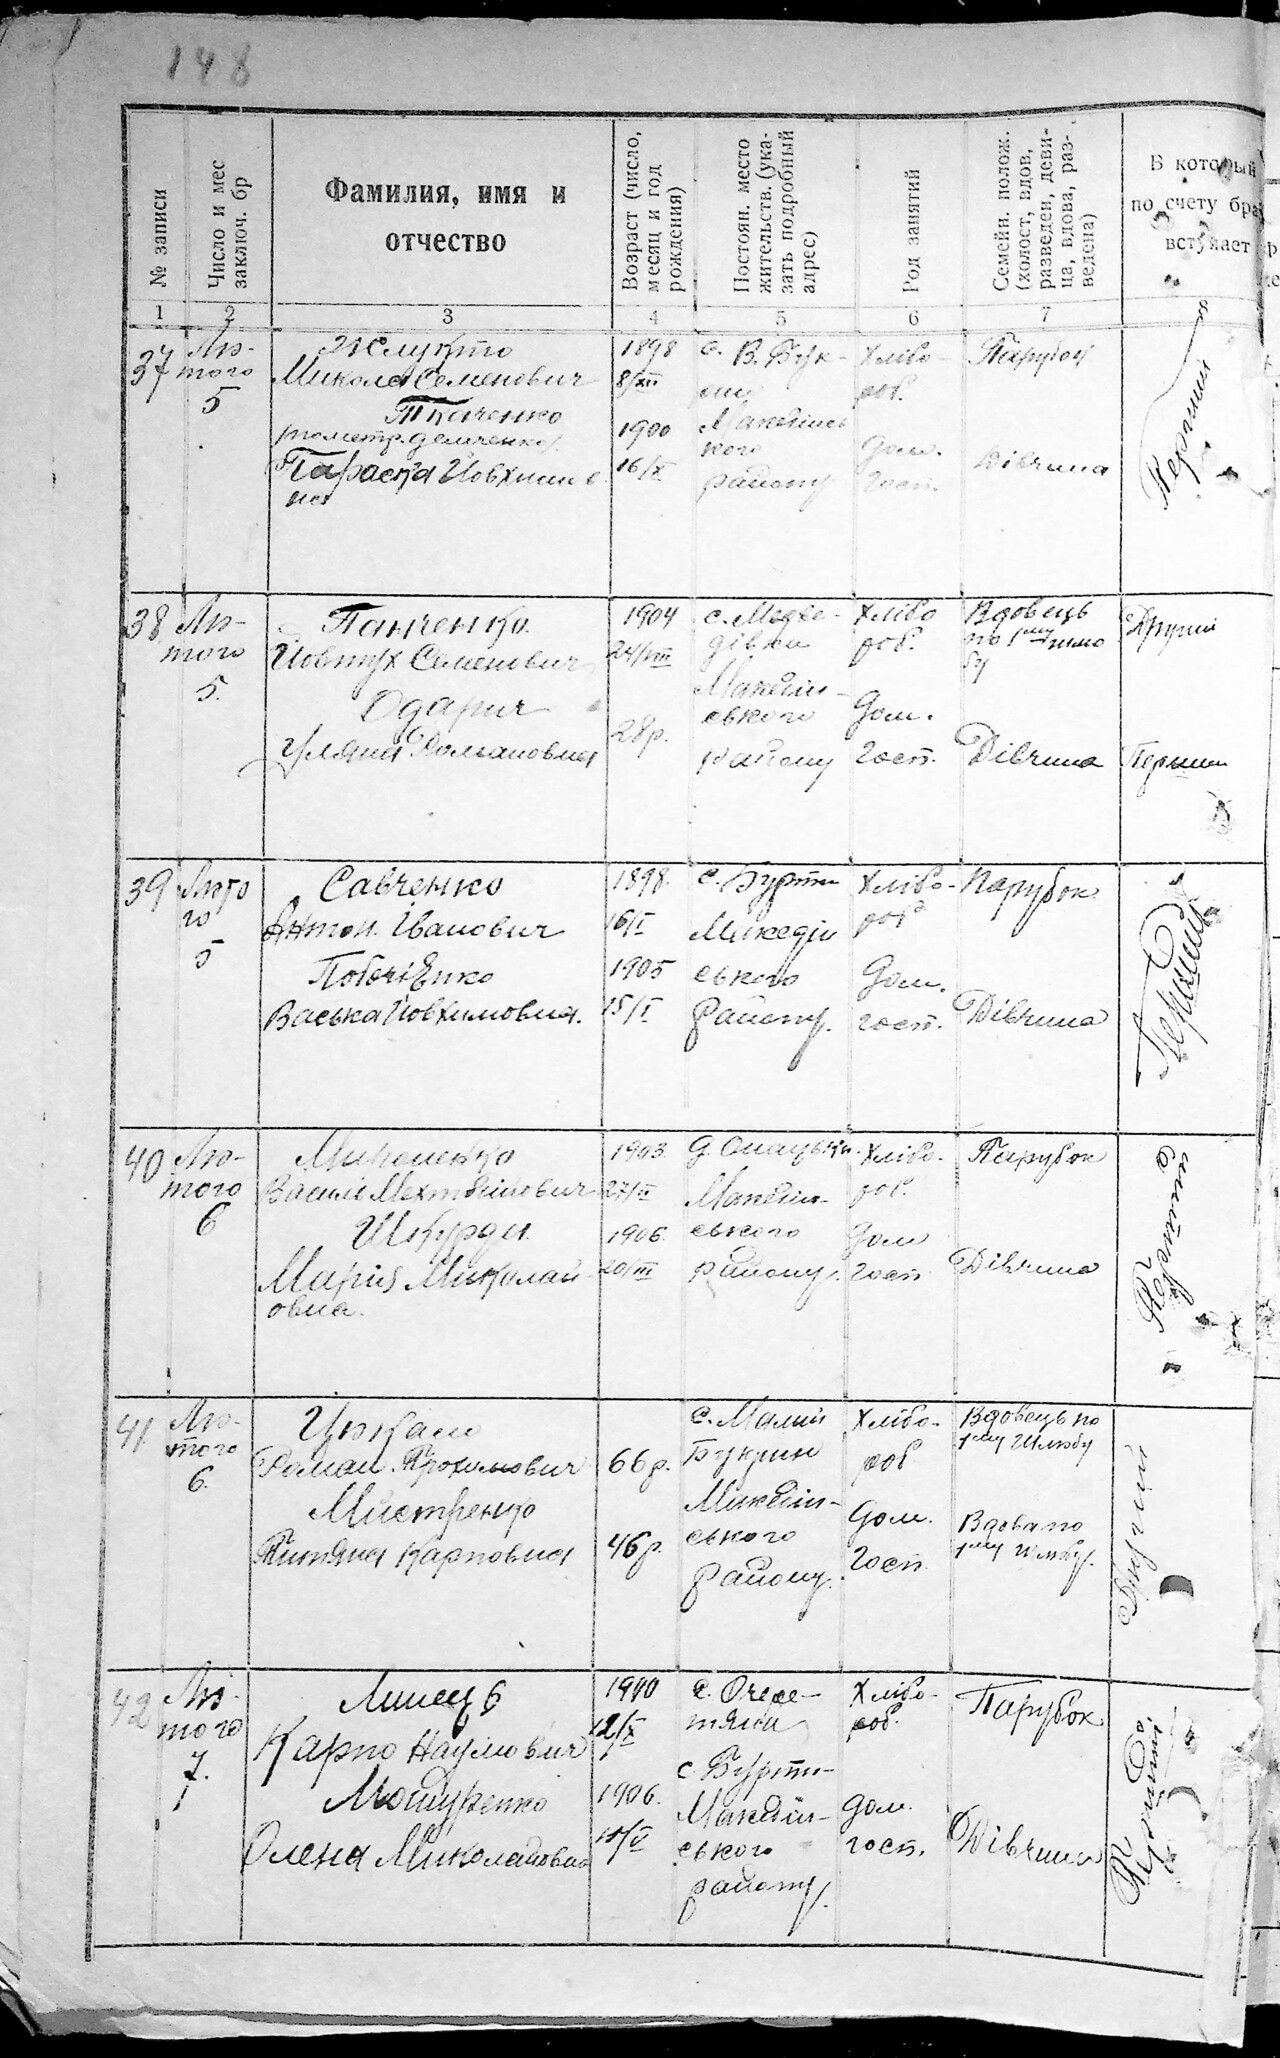 148
№ записи
Число и мес
заключ. бр
Фамилия, имя и
отчество
Возраст (число,
месяц и год
рождения)
Постоян. место
жительств. (ука-
зать подробный
адрес)
Род занятий
Семейн. полож.
(холост, вдов,
разведен, деви-
ца, вдова, раз-
ведена)
В который
по счету бра
вступает
1 2 3 4 5 6 7
37
Лю-
того
5
Микола Семенович
Ткаченко
Параска Йовхимів
на
1898
8/XII
1900
16/X
с. В. Бук-
рин
району
Хлібо-
роб.
Дом.
Госп.
Парубок
Дівчина
Перший
38
Лю-
того
5.
Панченко
Йовтух Семенович
Одарич
Уляна Романовна
1904
24/VIII
28р.
с. Медве-
дівки
ського
району
Хлібо
роб.
Дом.
Госп.
Вдовець
по 1му шлю
бу
Дівчина
Другий
Перший
39
Люто
го
5
Савченко
Антон Іванович
Васька Йовхимовна.
1898.
16/I
1905
15/I
с. Бурти
ського
Району.
Хлібо-
роб
Дом.
госп.
Парубок
Дівчина
Перший
40
Лю-
того
6
Мироненко
Шкурда
Марія Миколай
овна.
1903.
27/II
1906.
20/III
ського
району.
Хлібо-
роб.
Дом
госп
Парубок
Дівчина
Перший
41
Лю-
того
6.
Роман Прохимович
Карповна
66р.
46р.
с. Малий
Букрин
ського
Району.
Хлібо-
роб
Дом.
Госп
Вдовець по
1му Шлюбу
Вдова по
1му шлюбу.
Другий
42
Лю-
того
7.
Карпо Наумович
Мошуренко
Олена Миколайовна
12/X
1906.
10/V
с. Очере-
тяна
с. Бурти-
ського
району.
Хлібо-
роб.
Дом.
госп.
Парубок
Дівчина
Перший